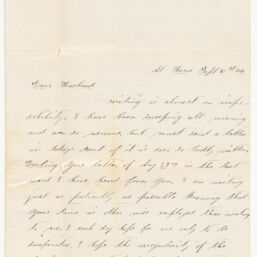 At Home Sept
Dear Husband
writing is almost an imposs-
ibility. I have been sweeping all morning
and am so nervous, but must send a letter
in today's mail if it is ever so badly written.
Your letter of Aug 23rd is the last
word I have heard from you. I am waiting
just as patiently as possible knowing that
your time is other wise employed than writing
to me, & each day hope for one only to be
disappointed. I hope the irregularity of the